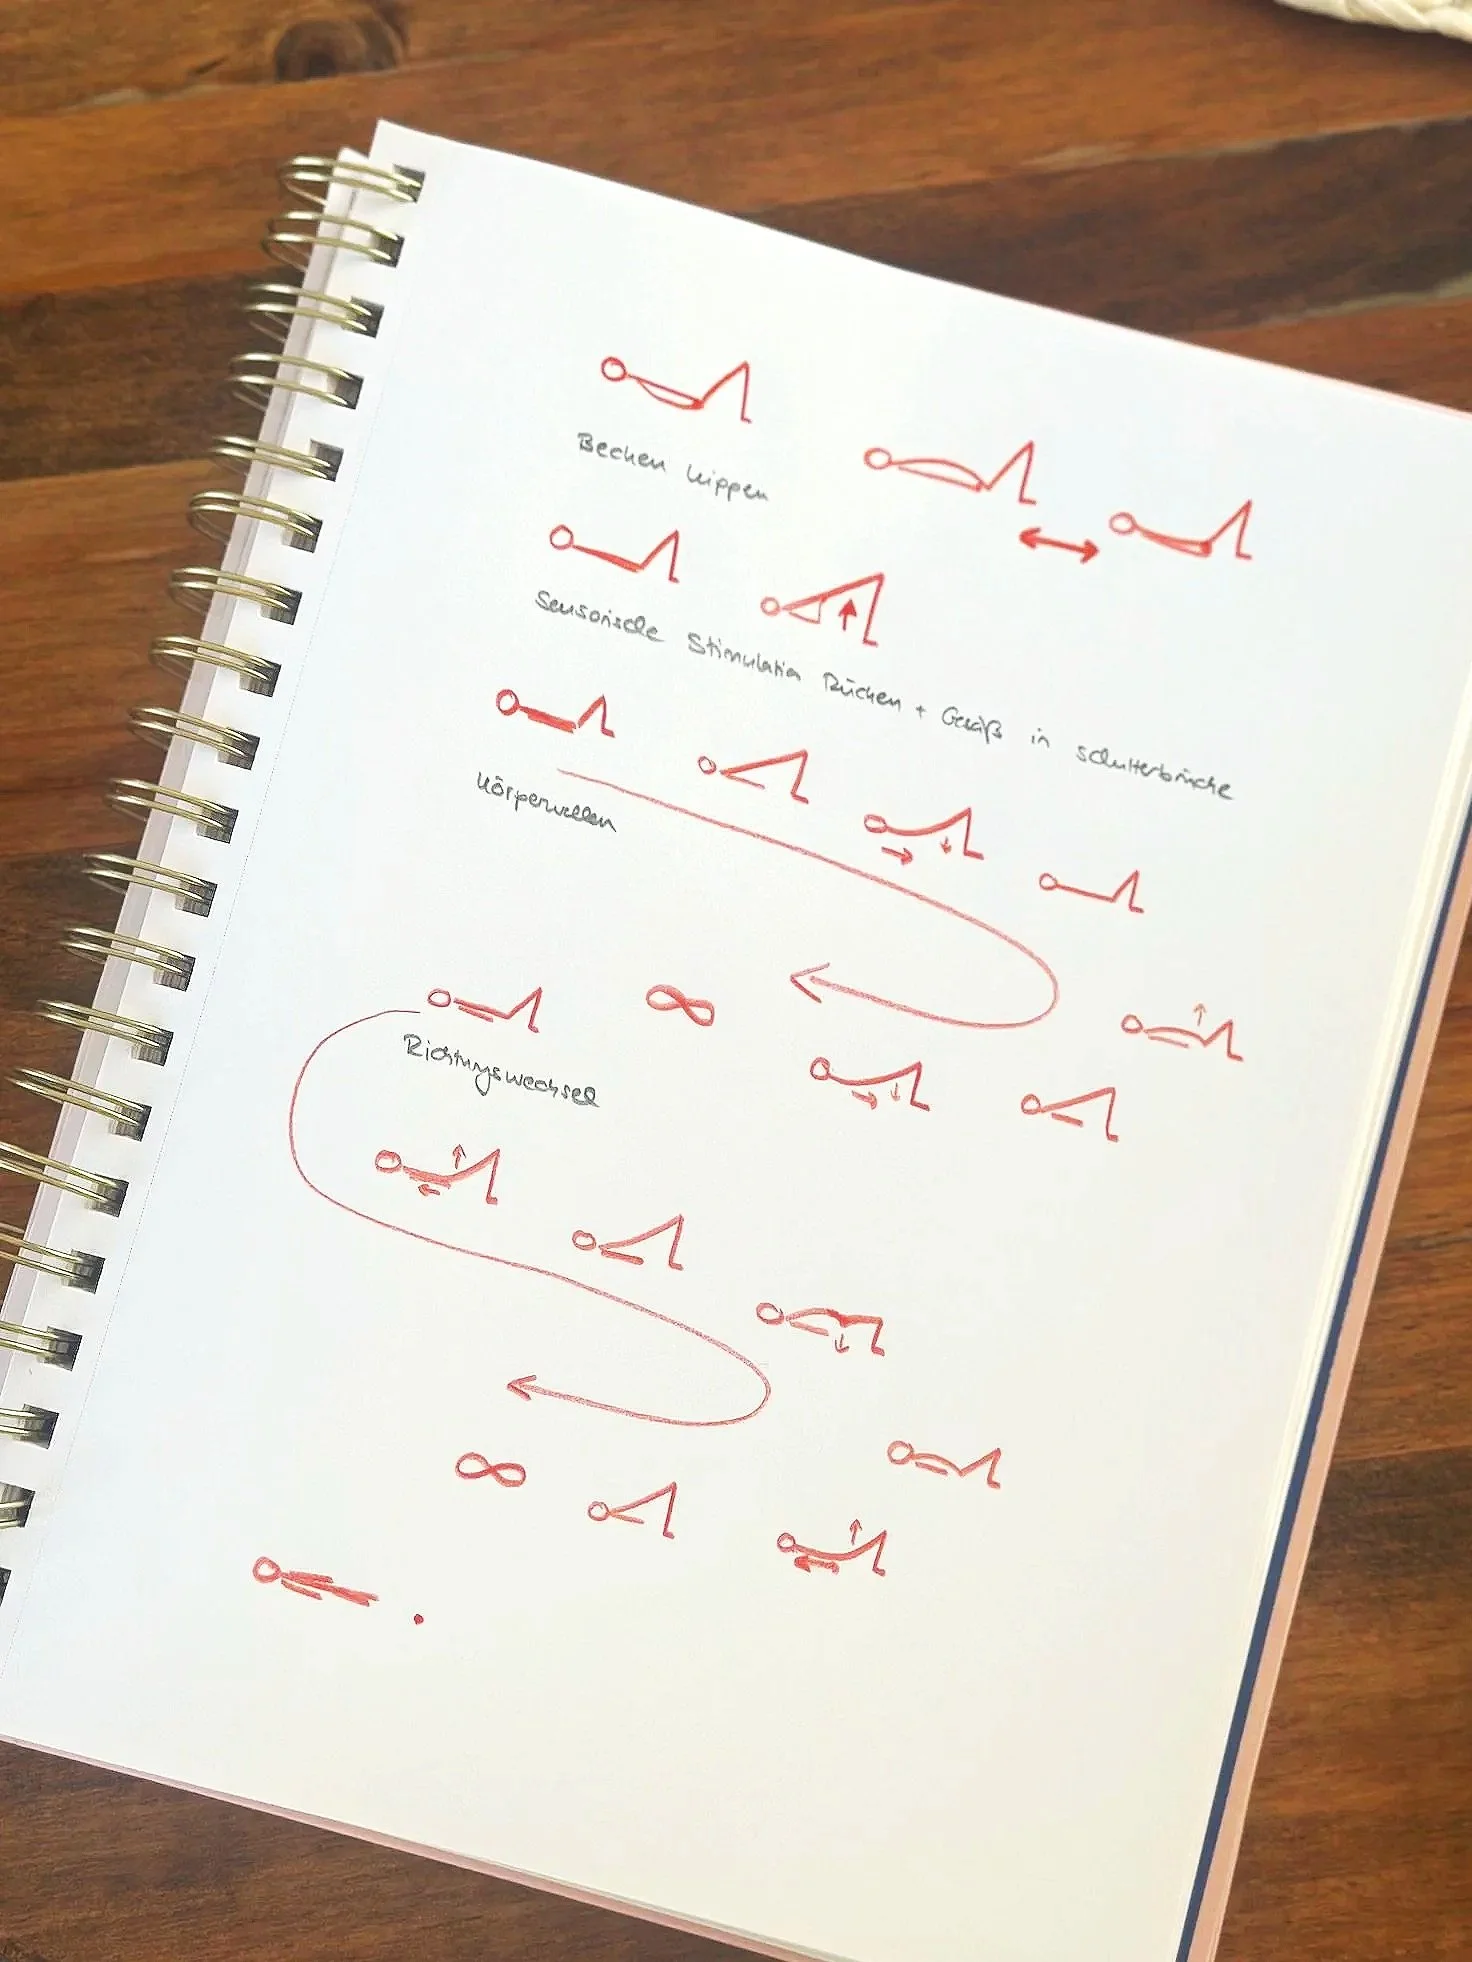 Becken kippen
Sensorische Stimulation Rücken + Gesäß in Schulterbrücke
Körperwellen
∞
Richtungswechsel
∞